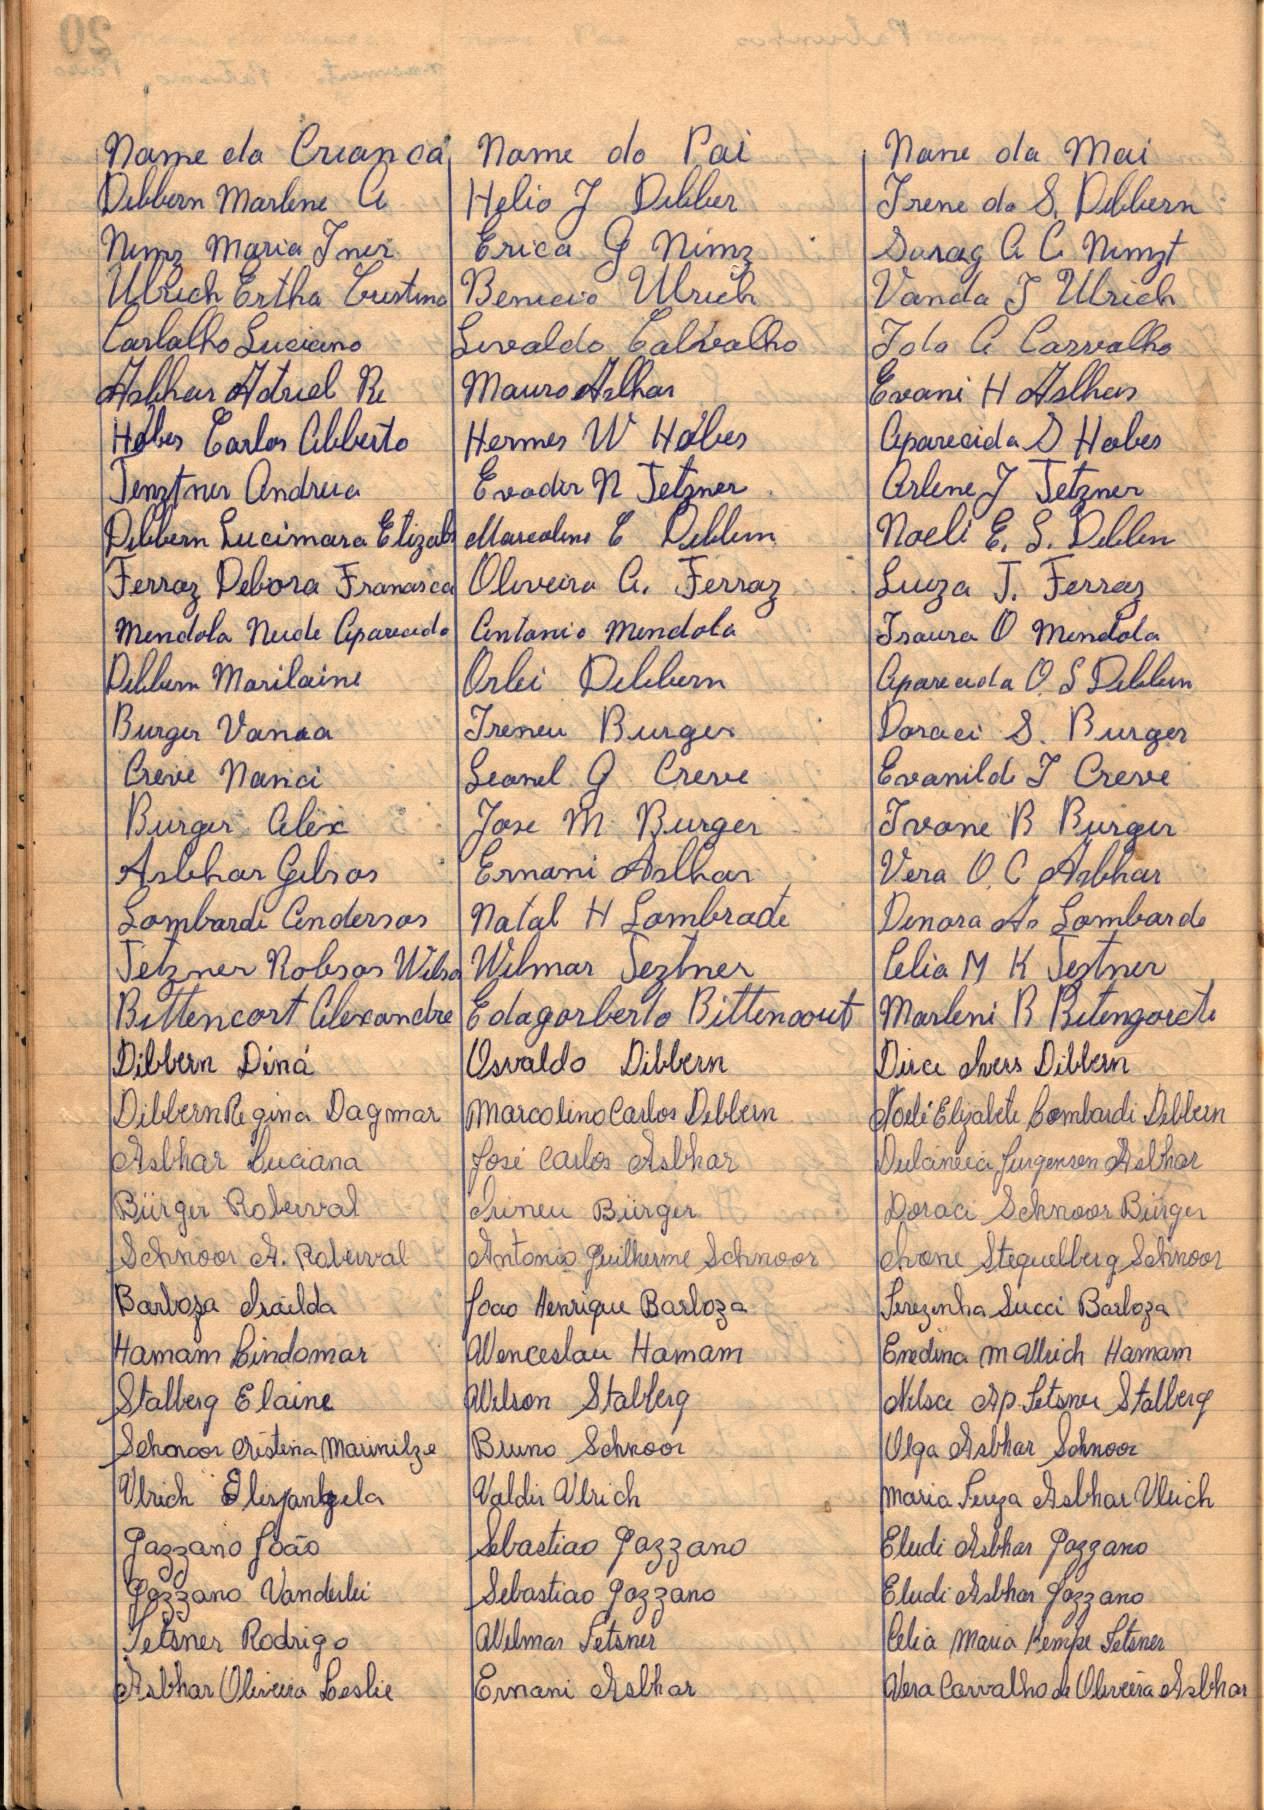 Name da Crianca Name do Pai Name da Mai
Dibbern Marlene A Helio J Dibber Irene do S. Dibbern
Nimz Maria Inez Erica G Nimz A C Nimzt
Ulrich Ertha Cristina Benicio Ulrich Vanda J Ulrich
Carlalho Luciano Levaldo Calvalho Ida A Carvalho
Asbhar Adriel Re Mauro Asbhar Evani H Asbhar
Hobes Carlos Alberto Hermes W Hobes Aparecida D Hobes
Tenztner Andreia Evadir N Tetzner Arlene J Tetzner
Dibbern Lucimara Elizab Marcolino C Dibbern Noeli E. L. Dibbern
Ferraz Debora Francisca Oliveira A. Ferraz Luiza T. Ferraz
Mendola Neide Aparecida Antonio Mendola Isaura O Mendola
Dibbern Marilaine Orlei Dibbern Aparecida O S Dibbern
Burger Vania Ireneu Burger Doraci S. Burger
Creve Nanci Leonel G Creve Evanilde T Creve
Burger Alex Jose M Burger Ivone B Burger
Asbhar Gilsos Ernani Asbhar Vera O. C Asbhar
Lombardi Andersos Natal H Lombrade Denora As Lombarde
Tetzner Robsos Wilso Wilmar Teztner Celia M K Teztner
Bittencort Alexandre Edagorberto Bittencout Marleni B
Dibbern Diná Osvaldo Dibbern Dirce Ivers Dibbern
Dibbern Regina Dagmar Marcolino Carlos Dibbern Noeli Elizabete Lombardi Dibbern
Asbhar Luciana José Carlos Asbhar Dulcineia Jurgensen Asbhar
Bürger Roberval Irineu Bürger Doraci Schnoor Bürger
Schnoor A. Roberval Antonio Guilherme Schnoor Ivone Stequelberg Schnoor
Barboza Isailda Joao Henrique Barboza Terezinha Succi Barboza
Hamam Lindomar Wenceslau Hamam Enedina M Ulrich Hamam
Stalberg Elaine Wilson Stalberg Nilsa Ap. Tetsner Stalberg
Schonoor Cristina Marinilze Bruno Schnoor Olga Asbhar Schnoor
Ulrich Elisangela Valdir Ulrich Maria Tereza Asbhar Ulrich
Gazzano João Sebastiao Gazzano Eludi Asbhar Gazzano
Gozzano Vanderlei Sebastiao Gozzano Eludi Asbhar Gozzano
Tetsner Rodrigo Wilmar Tetsner Celia Maria Kempe Tetsner
Asbhar Oliveira Leslie Ernani Asbhar Vera Carvalho de Oliveira Asbhar